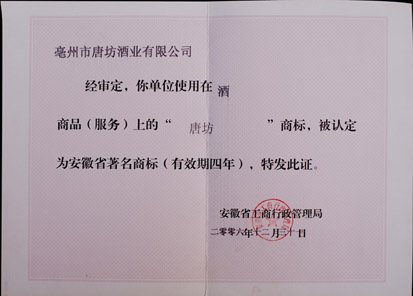 亳州市唐坊酒业有限公司
经审定，你单位使用在 酒
商品（服务）上的“ 唐坊 ”商标，被认定
为安徽省著名商标（有效期四年），特发此证。
安徽省工商行政管理局
二〇〇六年十二月三十日